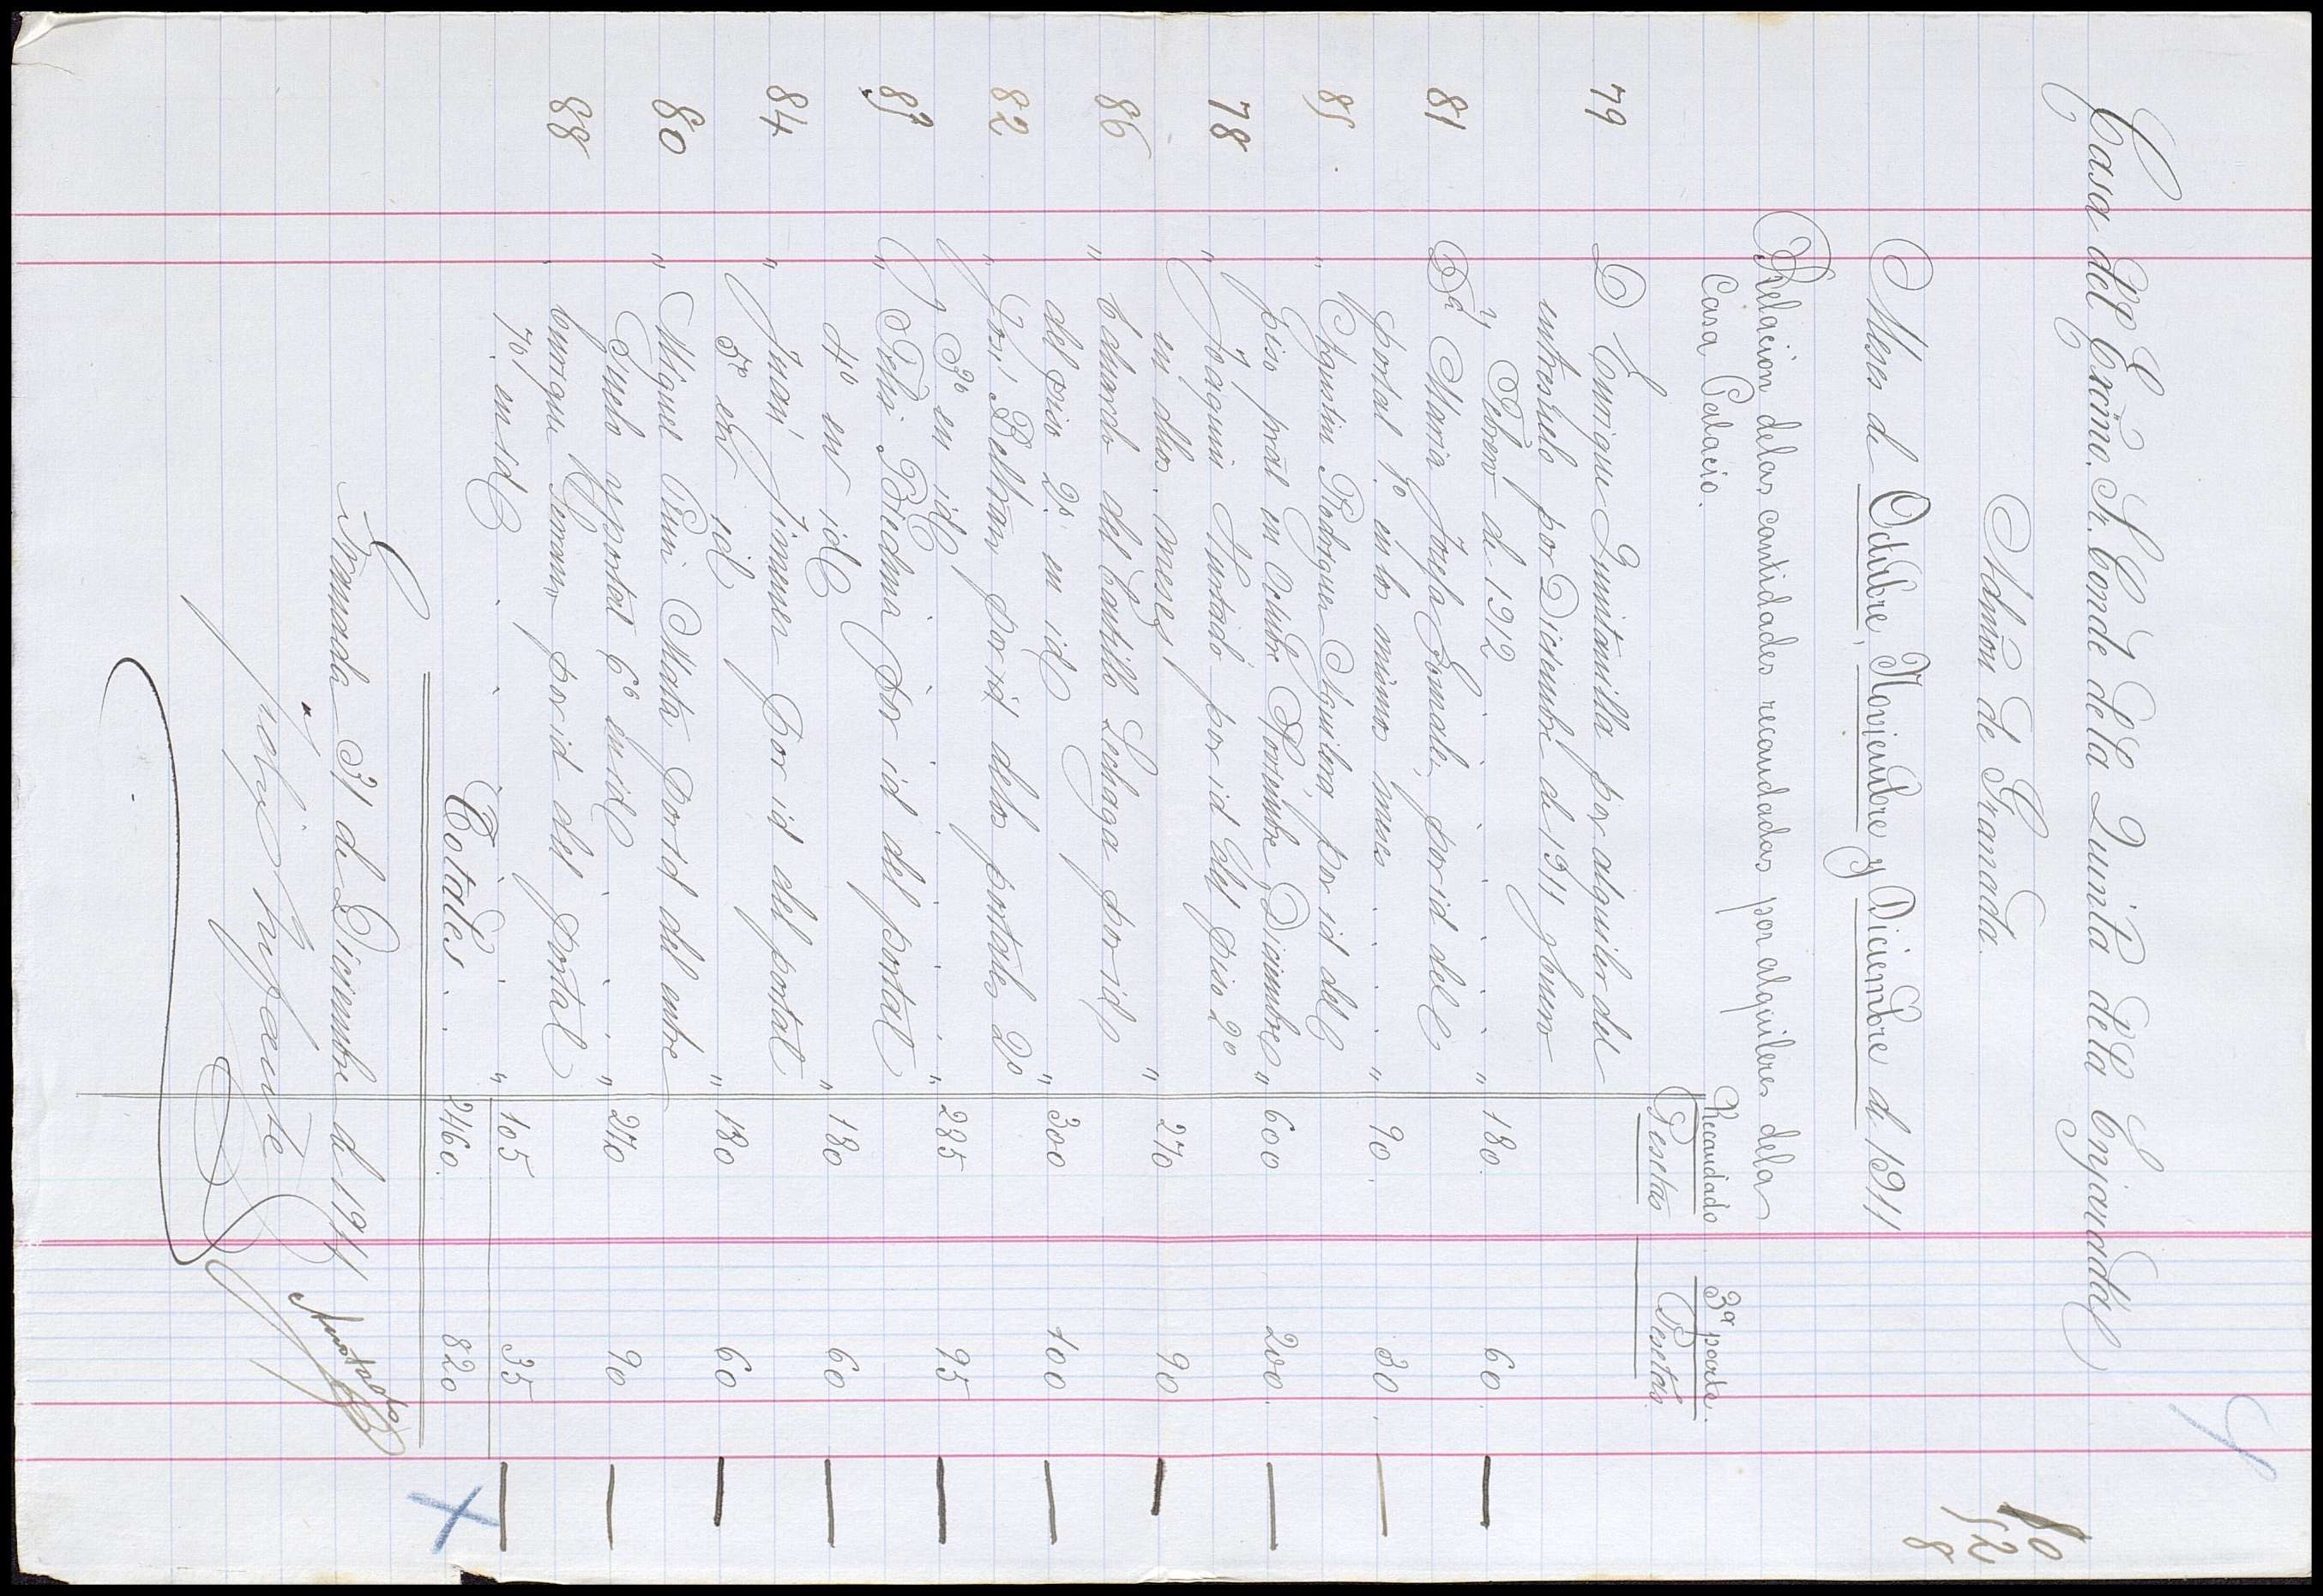 10
52
8
Casa del Excmo. Sr. Conde de la Quinta de la Enjarada
Admón de Granada.
Meses de Octubre, Noviembre y Diciembre de 1911
Relacion de las cantidades recaudadas por alquileres dela
Casa Palacio.
Recaudado 3ª parte.
Pesetas Pesetas.
79 D Enrique Quintanilla por alquiler del
entresuelo por Diciembre de 1911 y Enero
y Febrero de 1912 " 180. 60.
81 Dª Maria Josefa Gonzalez por id del
portal 1º en los mismos meses " 90. 30.
85 " Agustin Rodriguez Aguilera por id del
piso pral en Octubre Noviembre Diciembre " 600 200.
78 " Joaquin Hurtado por id del piso 2º
en dhos. meses " 270 90
86 " Eduardo del Castillo Lechaga por id
del piso 2º en id " 300 100
82 " José Beltran por id delos portales 2º
y 3º en id " 285 95
83 " Felix Biedma por id del portal
4º en id " 180 60
84 " Juan Jimenez por id del portal
5º en id " 180 60
80 " Miguel Ruiz Mata por id del entre
suelo y portal 6º en id " 270 90
88 " Enrique Serrano por id del portal
7º en id " 105 35
Totales 2460. 820
Granada 31 de Diciembre de 1911